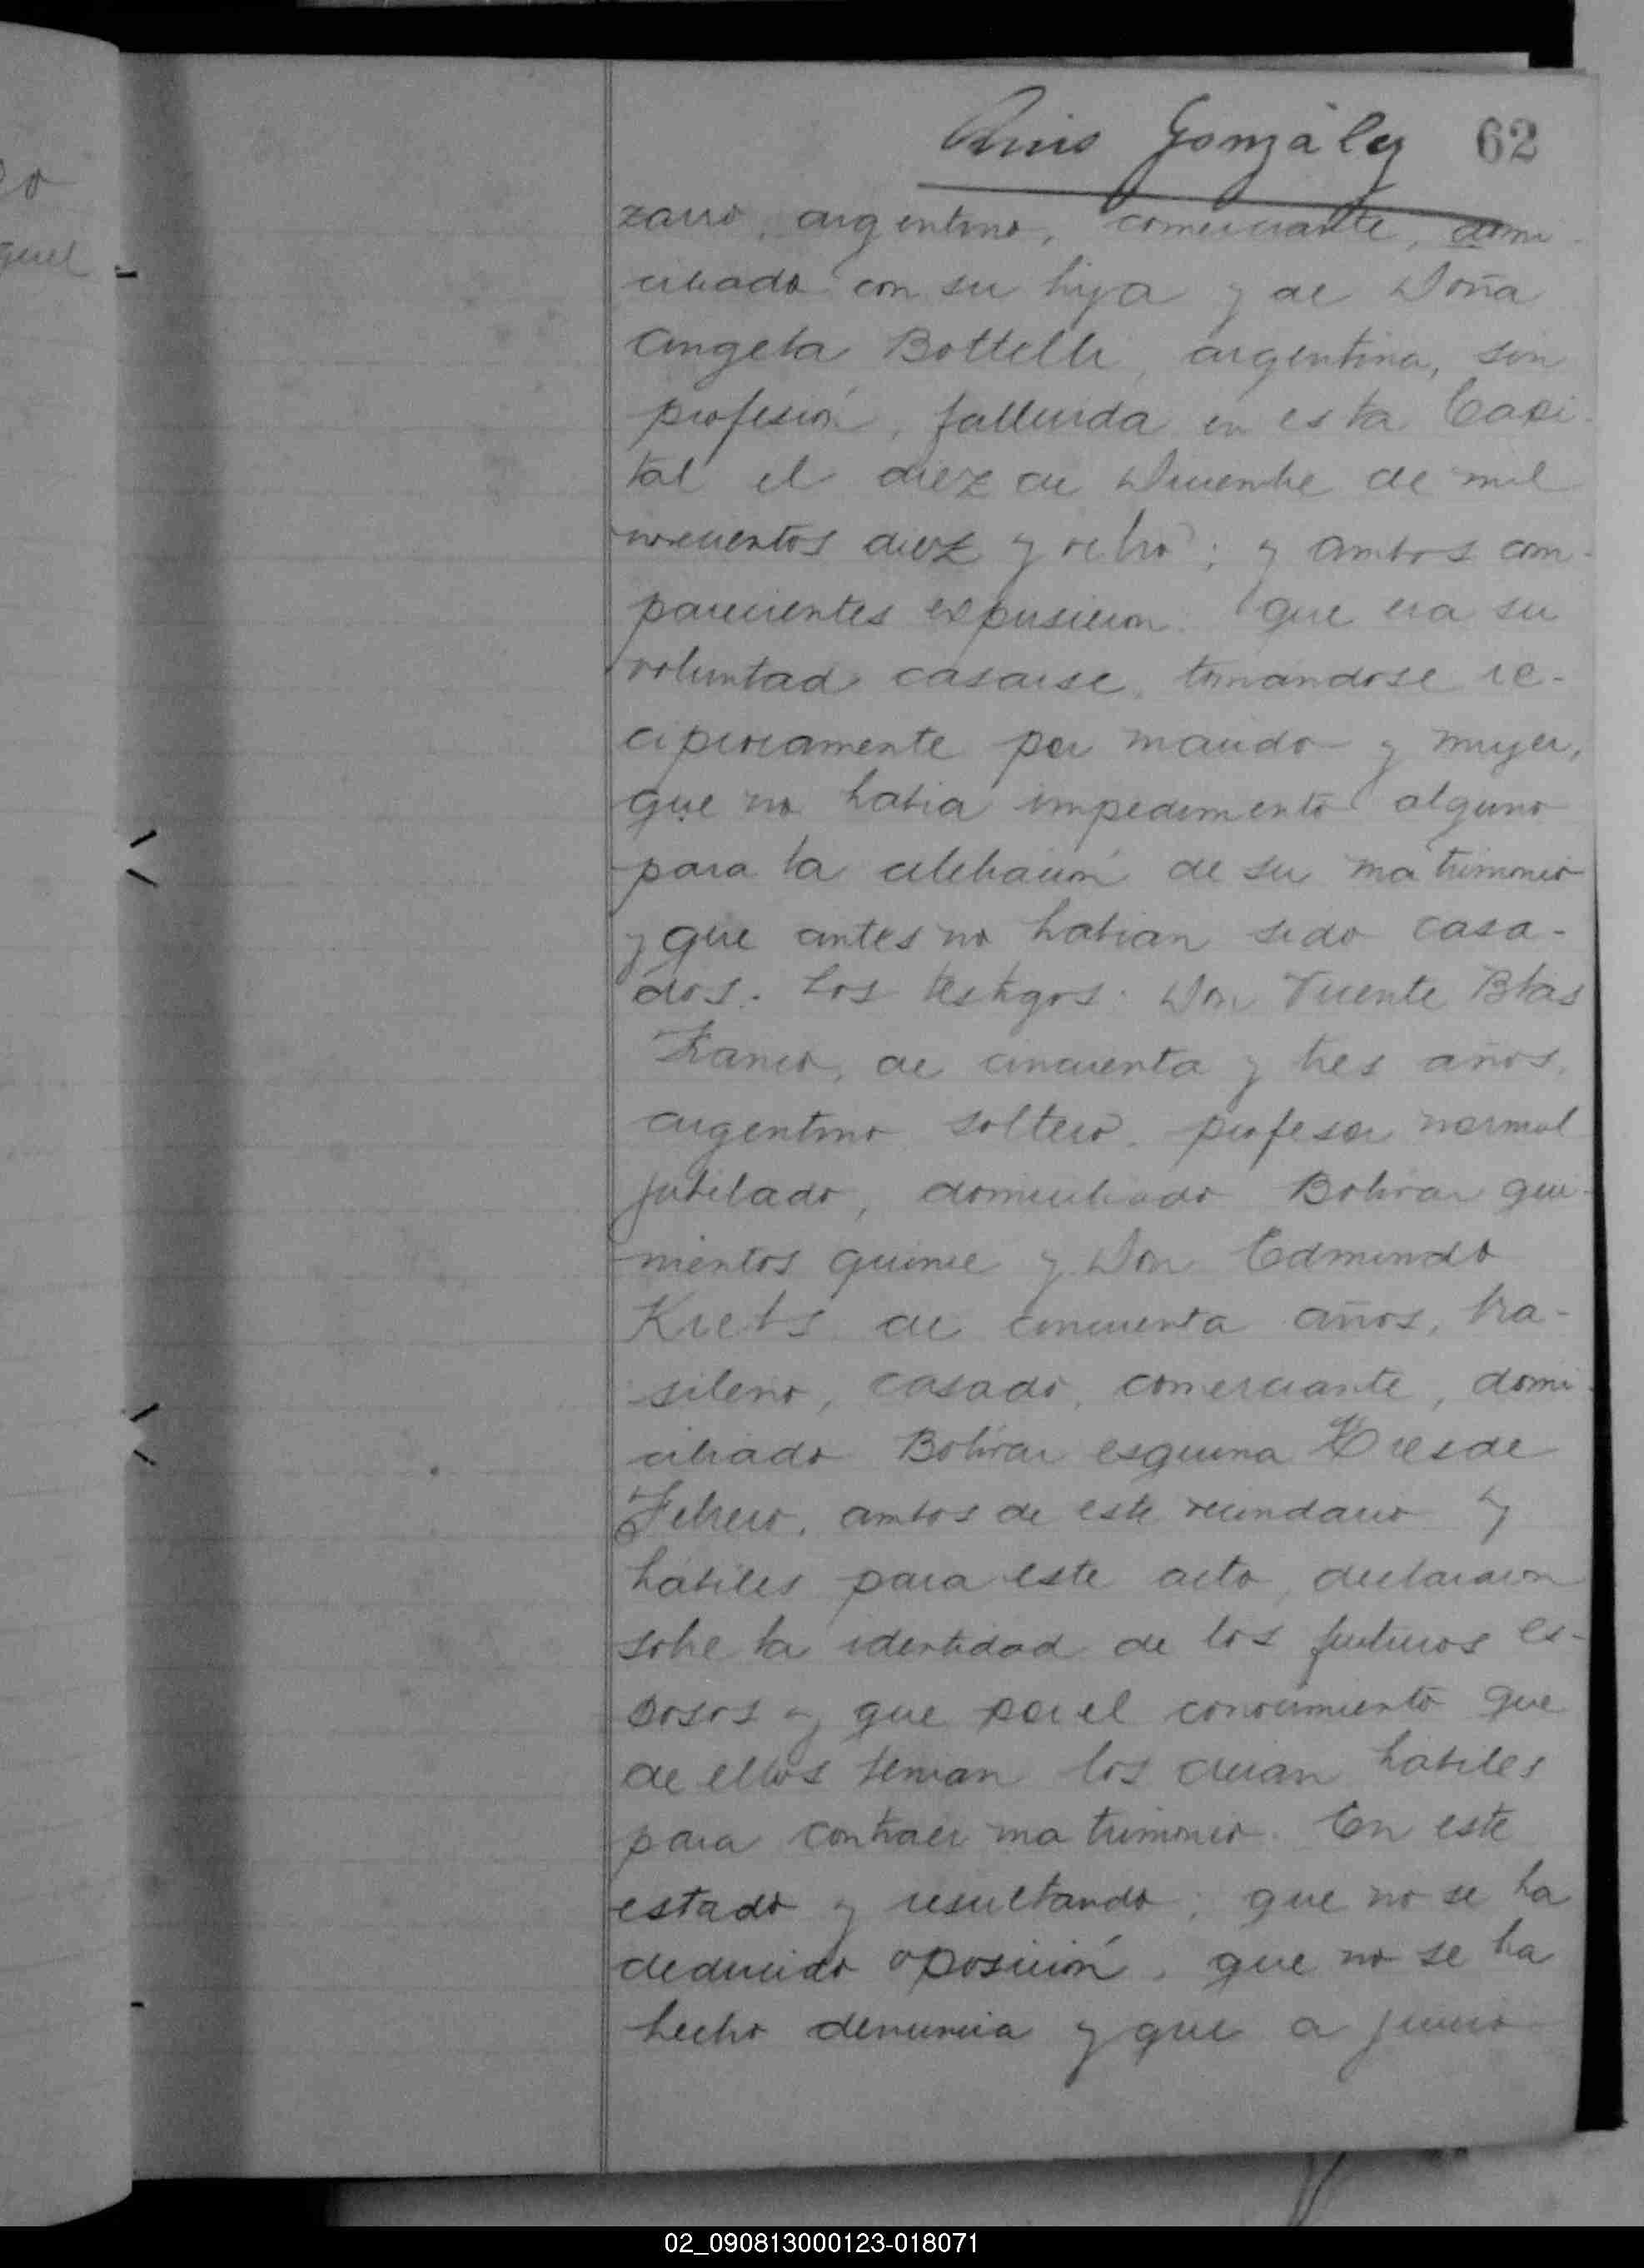 Luis González 62
zarro, argentino, comerciante, domi-
ciliado con su hija y de Doña
Angela Bottelli, argentina, sin
profesión, fallecida en esta Capi-
tal el diez de Diciembre de mil
novecientos diez y ocho; y ambos com-
parecientes expusieron: que era su
voluntad casarse, tomándose re-
ciprocamente por marido y mujer,
que no habia impedimento alguno
para la celebración de su matrimonio
y que antes no habian sido casa-
dos. Los testigos: Don Vicente Blas
Franco, de cincuenta y tres años,
argentino soltero, profesor normal
jubilado, domiciliado Bolivar qui-
nientos quince y Don Edmundo
Krebs de cincuenta años, bra-
sileno, casado, comerciante, domi-
ciliado Bolivar esquina Tres de
Febrero, ambos de este vecindario y
hábiles para este acto, declararon
sobre la identidad de los futuros es-
posos y que por el conocimiento que
de ellos tenian los creian hábiles
para contraer matrimonio. En este
estado y resultando: que no se ha
deducido oposición, que no se ha
hecho denuncia y que a juicio
02_090813000123-018071